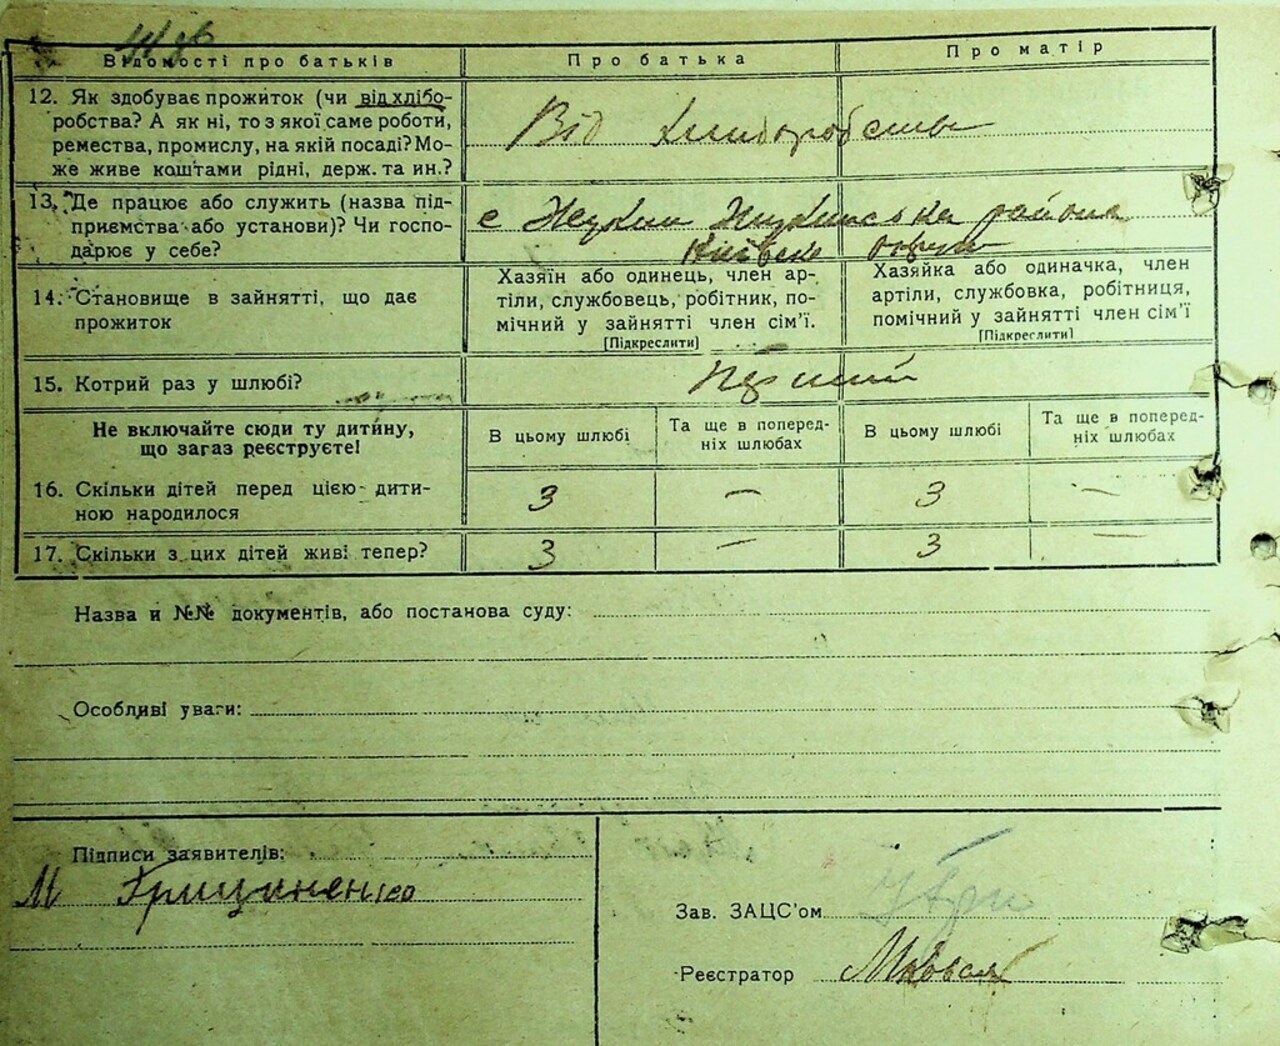 Відомості про батьків
Про батька
Про матір
12. Як здобуває прожиток (чи від хлібо-
робства? А як ні, то з якої саме роботи,
ремества, промислу, на якій посаді? Мо-
же живе коштами рідні, держ. та ин.?
Від хліборобства
13. Де працює або служить (назва під-
приємства або установи)? Чи госпо-
дарює у себе?
с района
14. Становище в зайнятті, що дає
прожиток
Хазяїн або одинець, член ар-
тіли, службовець, робітник, по-
мічний у зайнятті член сім'ї.
[Підкреслити]
Хазяйка або одиначка, член
артіли, службовка, робітниця,
помічний у зайнятті член сім'ї
[Підкреслити]
15. Котрий раз у шлюбі?
Перший
Не включайте сюди ту дитину,
що загаз реєструєте!
В цьому шлюбі
Та ще в поперед-
ніх шлюбах
В цьому шлюбі
Та ще в поперед-
ніх шлюбах
16. Скільки дітей перед цією дити-
ною народилося
3 — 3 —
17. Скільки з цих дітей живі тепер?
3 — 3 —
Назва и №№ документів, або постанова суду:
Особливі уваги:
Підписи заявителів:
М Грициненко
Зав. ЗАЦС'ом
Реєстратор